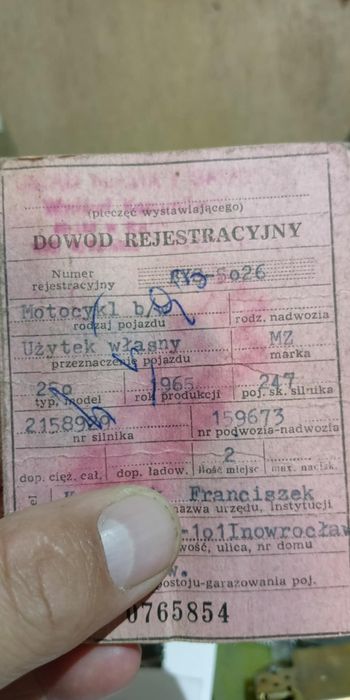 (pieczęć wystawiającego)
DOWOD REJESTRACYJNY
Numer
rejestracyjny
5o26
Motocykl
rodzaj pojazdu
rodz. nadwozia
Użytek własny
MZ
przeznaczenie pojazdu
marka
25o 1965 247
typ, model rok produkcji poj. sk. silnika
159673
nr silnika nr podwozia-nadwozia
2
dop. cięż. cał. dop. ładow. ilość miejsc max. nacisk.
Franciszek
nazwa urzędu, instytucji
-1o1Inowrocław
ulica, nr domu
w.
postoju-garażowania poj.
0765854